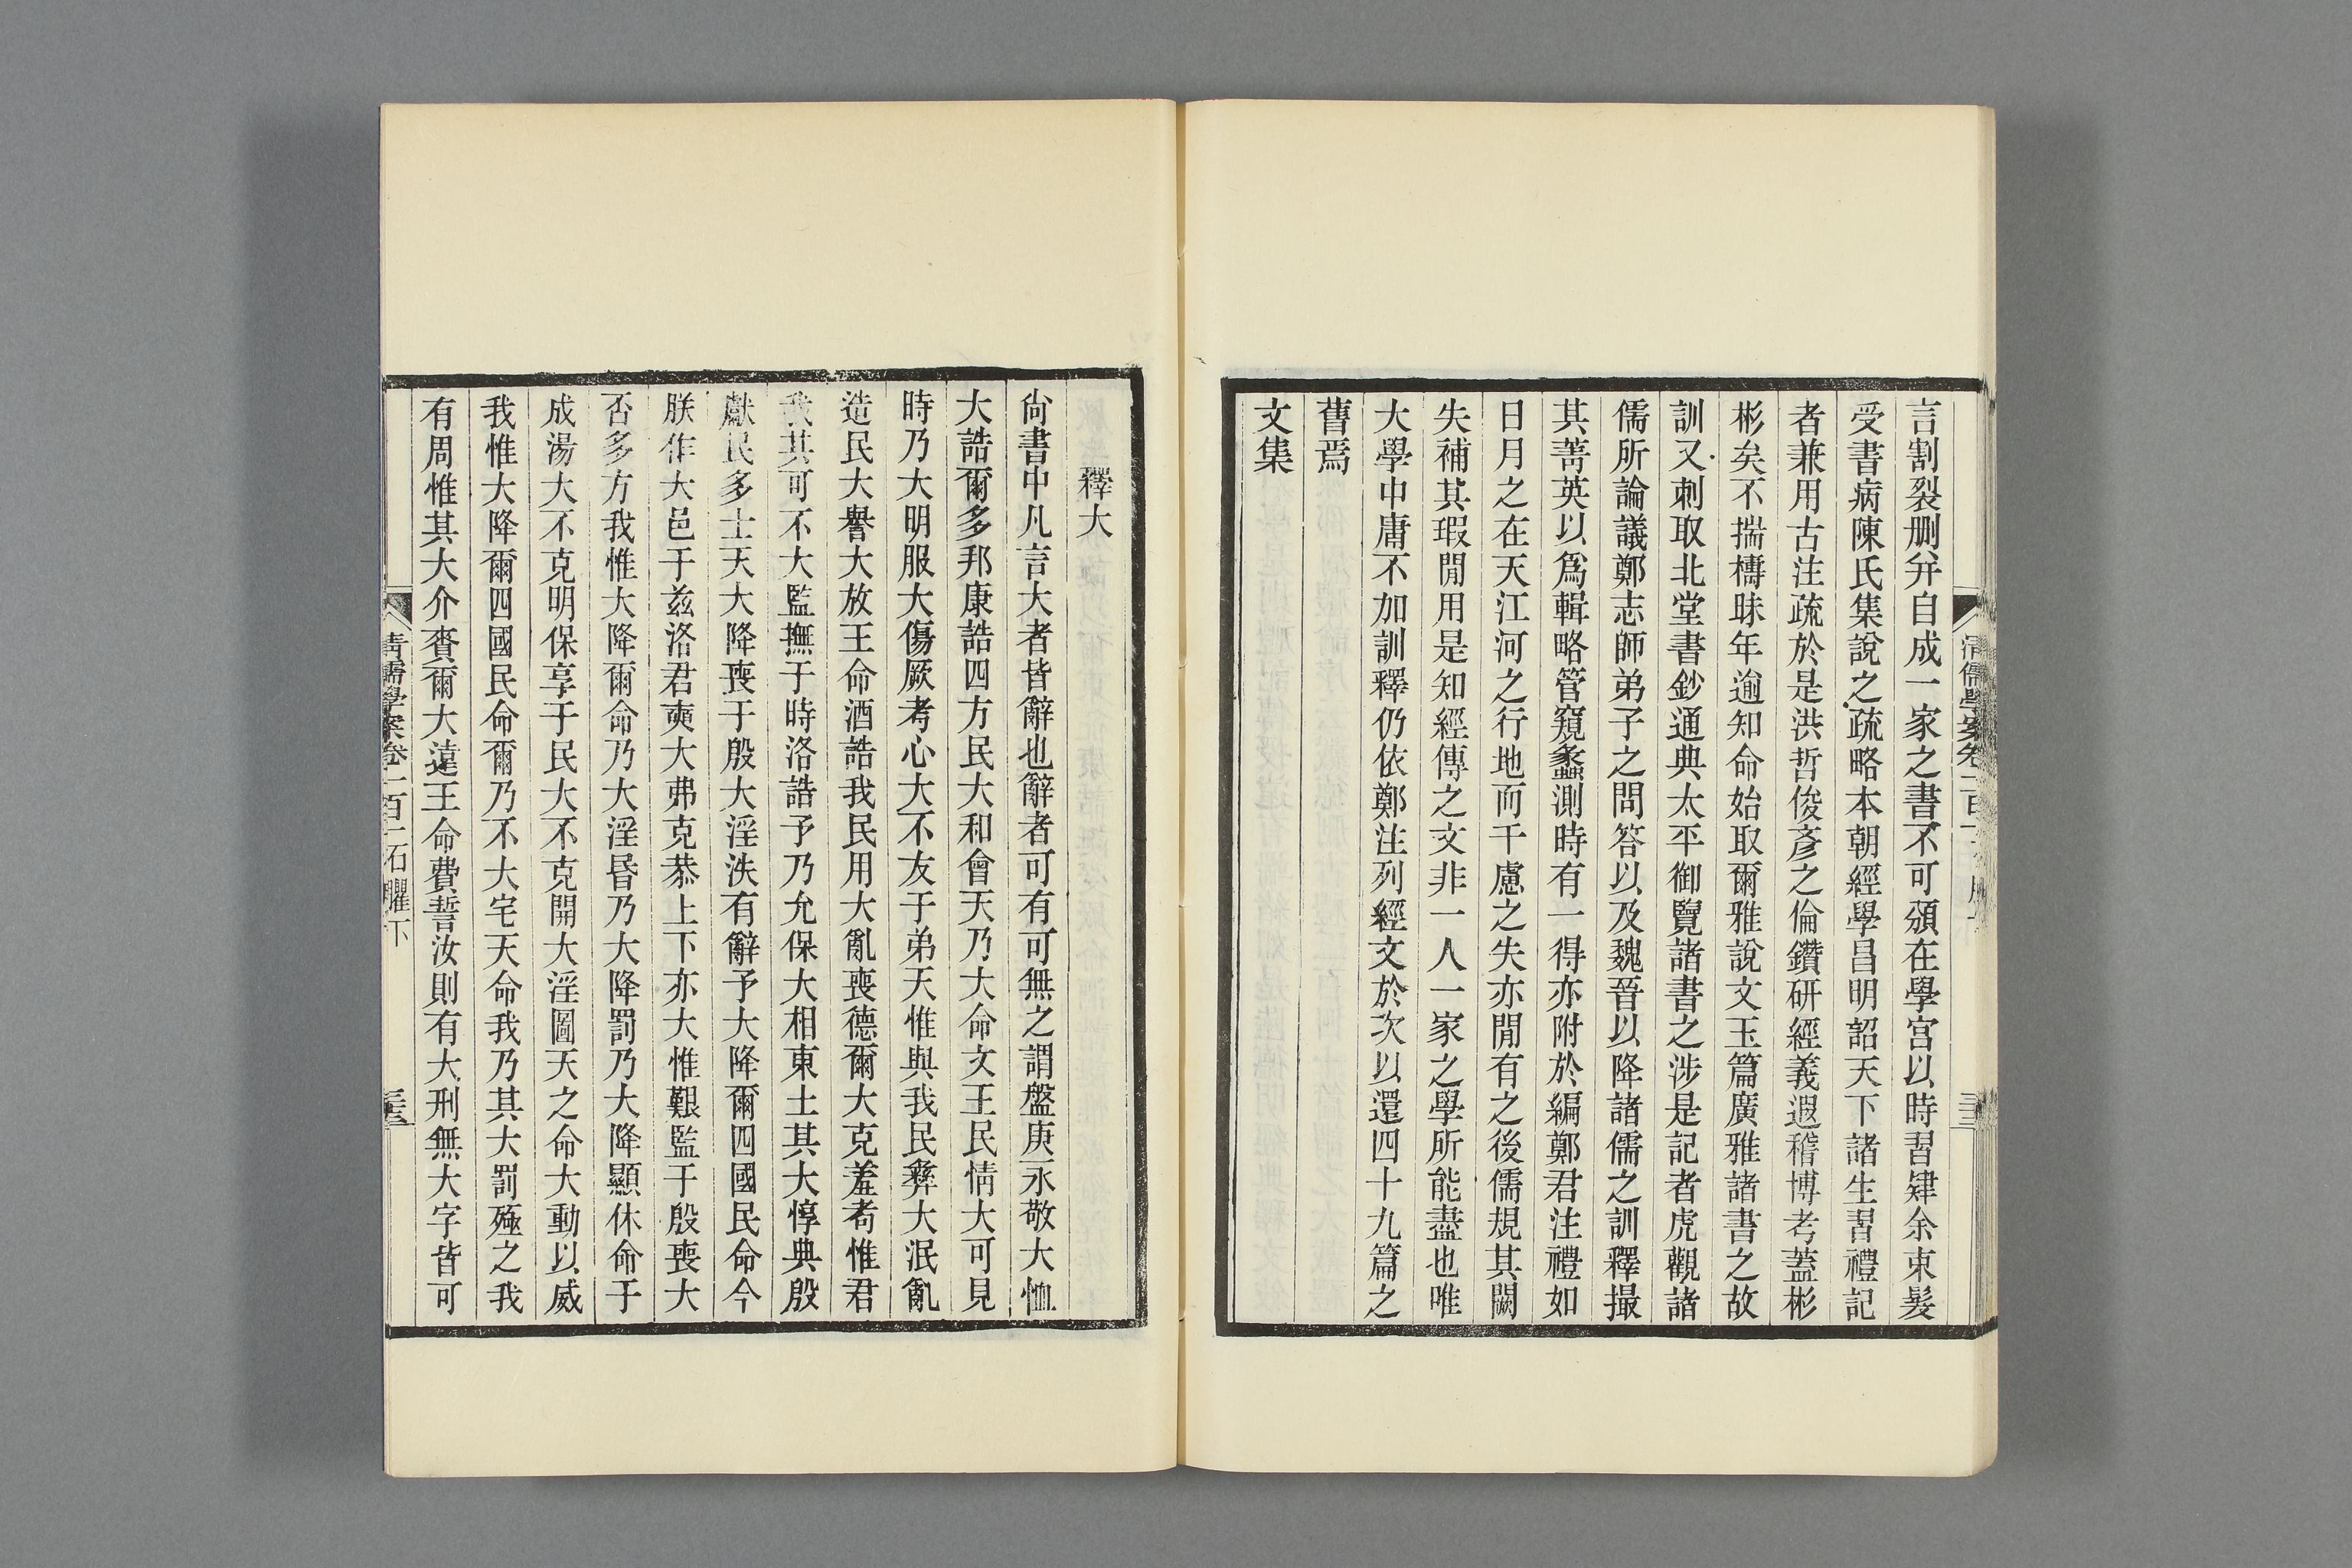 言割裂删弁自成一家之書不可頒在學宫以時習肄余束髮
受書病陳氏集說之疏略本朝經學昌明詔天下諸生習禮記
者兼用古注疏於是洪哲俊彥之倫鑽研經義遐稽博考蓋彬
彬矣不揣檮昧年逾知命始取爾雅說文玉篇廣雅諸書之故
訓又刺取北堂書鈔通典太平御覽諸書之涉是記者虎觀諸
儒所論議鄭志師弟子之問答以及魏晉以降諸儒之訓釋撮
其菁英以爲輯略管窺蠡測時有一得亦附於編鄭君注禮如
日月之在天江河之行地而千慮之失亦閒有之後儒規其闕
失補其瑕閒用是知經傳之文非一人一家之學所能盡也唯
大學中庸不加訓釋仍依鄭注列經文於次以還四十九篇之
舊焉
文集
釋大
尙書中凡言大者皆辭也辭者可有可無之謂盤庚永敬大恤
大誥爾多邦康誥四方民大和會天乃大命文王民情大可見
時乃大明服大傷厥考心大不友于弟天惟與我民彝大泯亂
造民大譽大放王命酒誥我民用大亂喪德爾大克羞耇惟君
我其可不大監撫于時洛誥予乃允保大相東土其大惇典殷
獻民多士天大降喪于殷大淫泆有辭予大降爾四國民命今
朕作大邑于兹洛君奭大弗克恭上下亦大惟艱監于殷喪大
否多方我惟大降爾命乃大淫昬乃大降罰乃大降顯休命于
成湯大不克明保享于民大不克開大淫圖天之命大動以威
我惟大降爾四國民命爾乃不大宅天命我乃其大罰殛之我
有周惟其大介賚爾大遠王命費誓汝則有大刑無大字皆可
清儒學案卷二百二石臞下